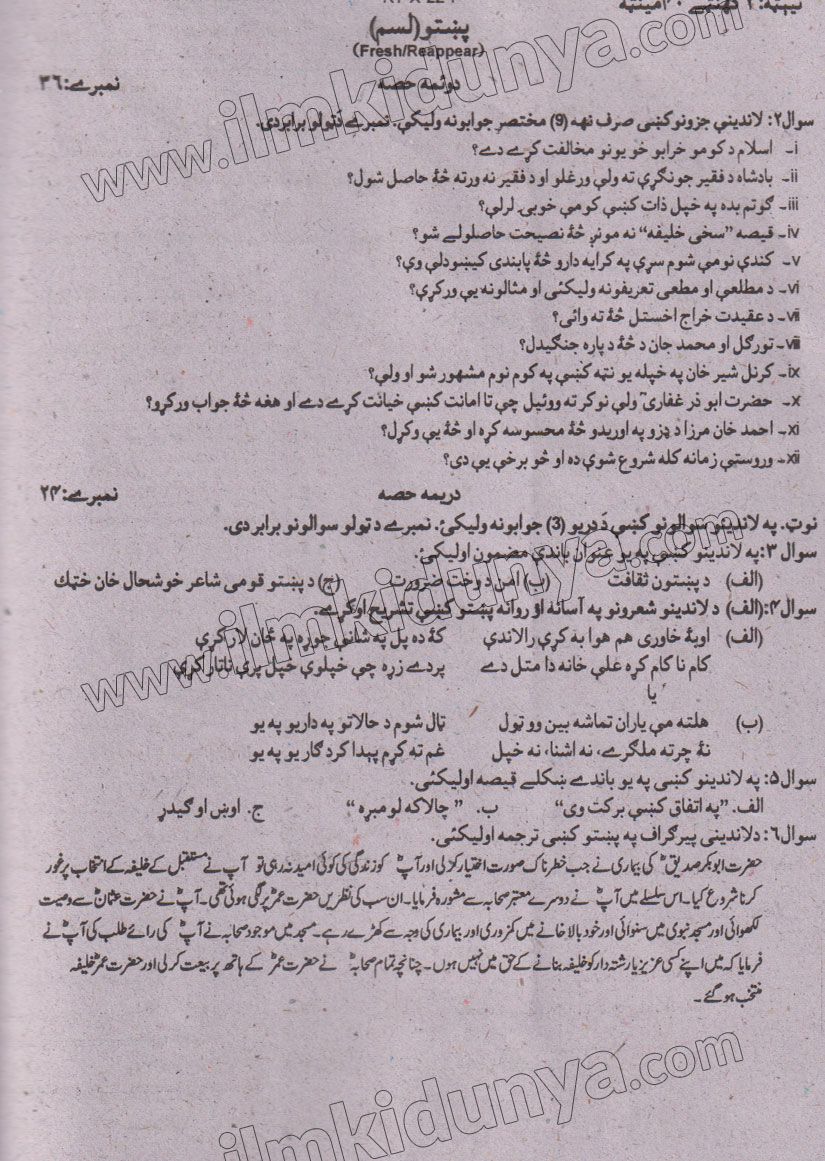 پښتو (لسم)
(Fresh/Reappear)
دوئمه حصه نمبرے: ۳۶
سوال۲: لاندیني جزونو کښی صرف نهه (9) مختصر جوابونه ولیکې. نمبرے دَټولو برابردی.
i- اسلام د کومو خرابو خویونو مخالفت کړے دے؟
ii- بادشاه د فقیر جونګړې ته ولې ورغلو او د فقیر نه ورته څۀ حاصل شول؟
iii- ګوتم بده په خپل ذات کښې کومې خوبۍ لرلې؟
iv- قیصه "سخی خلیفه" نه مونږ څۀ نصیحت حاصلولے شو؟
v- کندې نومې شوم سړی په کرایه دارو څۀ پابندی کیښودلې وې؟
vi- د مطلعې او مقطعې تعریفونه ولیکئی او مثالونه یې ورکړې؟
vii- د عقیدت خراج اخستل څۀ ته وائی؟
viii- تورګل او محمد جان د څۀ د پاره جنګیدل؟
ix- کرنل شیر خان په خپله یونټه کښې په کوم نوم مشهور شو او ولې؟
x- حضرت ابو ذر غفاریؓ ولې نوکر ته ووئیل چې تا امانت کښې خیانت کړے دے او هغه څۀ جواب ورکړو؟
xi- احمد خان مرزا د ډزو په اوریدو څۀ محسوسه کړه او څۀ یې وکړل؟
xii- وروستې زمانه کله شروع شوې ده او څو برخې یې دی؟
دریمه حصه نمبرے: ۲۴
نوټ. په لاندینو سوالونو کښې دَ دریو (3) جوابونه ولیکئ. نمبرے د ټولو سوالونو برابر دی.
سوال ۳: په لاندینو کښې په یو عنوان باندې مضمون اولیکئ.
(الف) د پښتون ثقافت (ب) امن د وخت ضرورت (ج) د پښتو قومی شاعر خوشحال خان خټك
سوال۴: (الف) د لاندینو شعرونو په آسانه او روانه پښتو کښې تشریح اوکړے.
(الف) اوبۀ خاورې هم هوا به کړې رالاندې کۀ ده پل په شانې جوړه په ځان لار کړې
کام نا کام کړه علې خانه دا متل دے پردے زړه چې خپلوې خپل پرې ناتار کړې
یا
(ب) هلته مې یاران تماشه بین وو ټول ټال شوم د حالاتو په داریو په یو
نۀ چرته ملګرے، نه اشنا، نه خپل غم ته کړم پېدا کردګار یو په یو
سوال۵: په لاندینو کښی په یو باندے ښکلے قیصه اولیکئی.
الف. "په اتفاق کښې برکت وی" ب. "چالاکه لومبړه" ج. اوښ او ګیدړ
سوال٦: دلاندینی پیرګراف په پښتو کښی ترجمه اولیکئی.
حضرت ابوبکر صدیقؓ کی بیماری نے جب خطرناک صورت اختیار کر لی اور آپؓ کو زندگی کی کوئی امید نہ رہی تو آپؓ نے مستقبل کے خلیفہ کے انتخاب پر غور
کرنا شروع کیا۔ اس سلسلے میں آپؓ نے دوسرے معتبر صحابہ سے مشورہ فرمایا۔ ان سب کی نظریں حضرت عمرؓ پر لگی ہوئی تھی۔ آپؓ نے حضرت عثمانؓ سے وصیت
لکھوائی اور مسجد نبوی میں سنوائی اور خود بالا خانے میں کمزوری اور بیماری کی وجہ سے کھڑے رہے۔ مسجد میں موجود صحابہ نے آپؓ کی رائے طلب کی آپؓ نے
فرمایا کہ میں اپنے کسی عزیز یا رشتہ دار کو خلیفہ بنانے کے حق میں نہیں ہوں۔ چنانچہ تمام صحابہؓ نے حضرت عمرؓ کے ہاتھ پر بیعت کر لی اور حضرت عمرؓ خلیفہ
منتخب ہو گئے۔
www.ilmkidunya.com
www.ilmkidunya.com
www.ilmkidunya.com